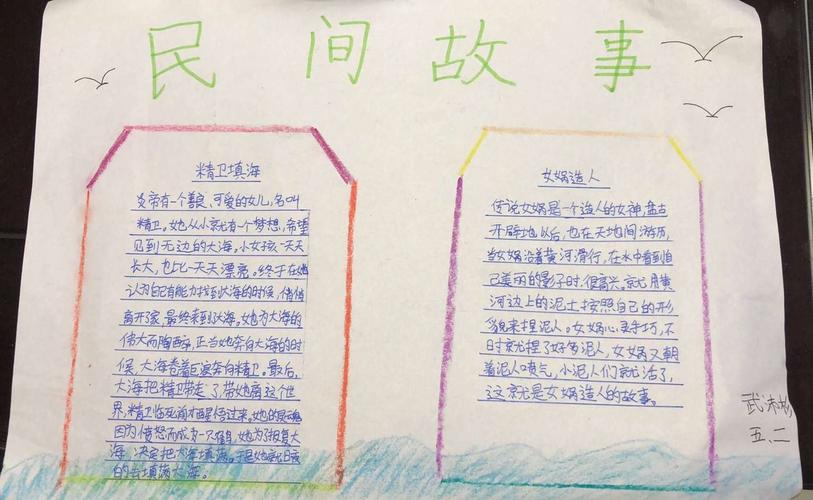 民间故事
精卫填海
炎帝有一个善良、可爱的女儿,名叫
精卫。她从小就有一个梦想,希望
见到无边的大海,小女孩一天天
长大,也比一天天漂亮。终于在她
认为自己有能力找到大海的时候,悄悄
离开了家,最终来到大海。她为大海的
伟大而陶醉,正当她奔向大海的时
候,大海卷着巨浪奔向精卫。最后,
大海把精卫带走了,带她离这个世
界,精卫临死前才醒悟过来。她的灵魂
因为愤怒而成为一只鸟,她为了报复大
海,决定把大海填满。于是她就日夜
的去填满大海。
女娲造人
传说女娲是一个造人的女神,盘古
开辟地以后,也在天地间游历,
当女娲沿着黄河滑行,在水中看到自
己美丽的影子时,很高兴,就用黄
河边上的泥土按照自己的形
貌来捏泥人。女娲心灵手巧,不
时就捏了好多泥人,女娲又朝
着泥人喷气,小泥人们就活了,
这就是女娲造人的故事。
武沐
五、二